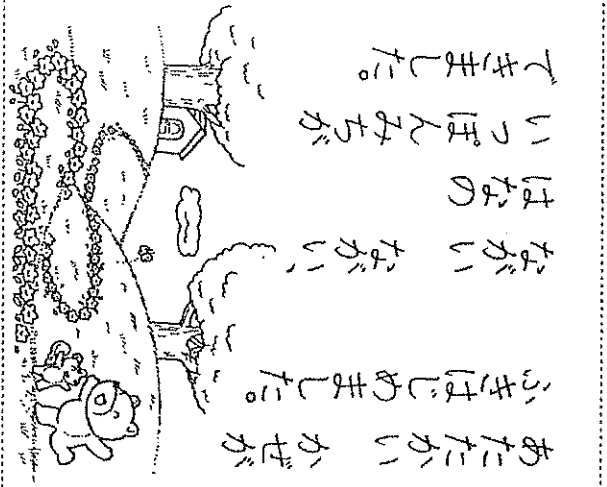 あたたかい　かぜが
ふきはじめました。
ながい　ながい、
はなの
いっぽんみちが
できました。